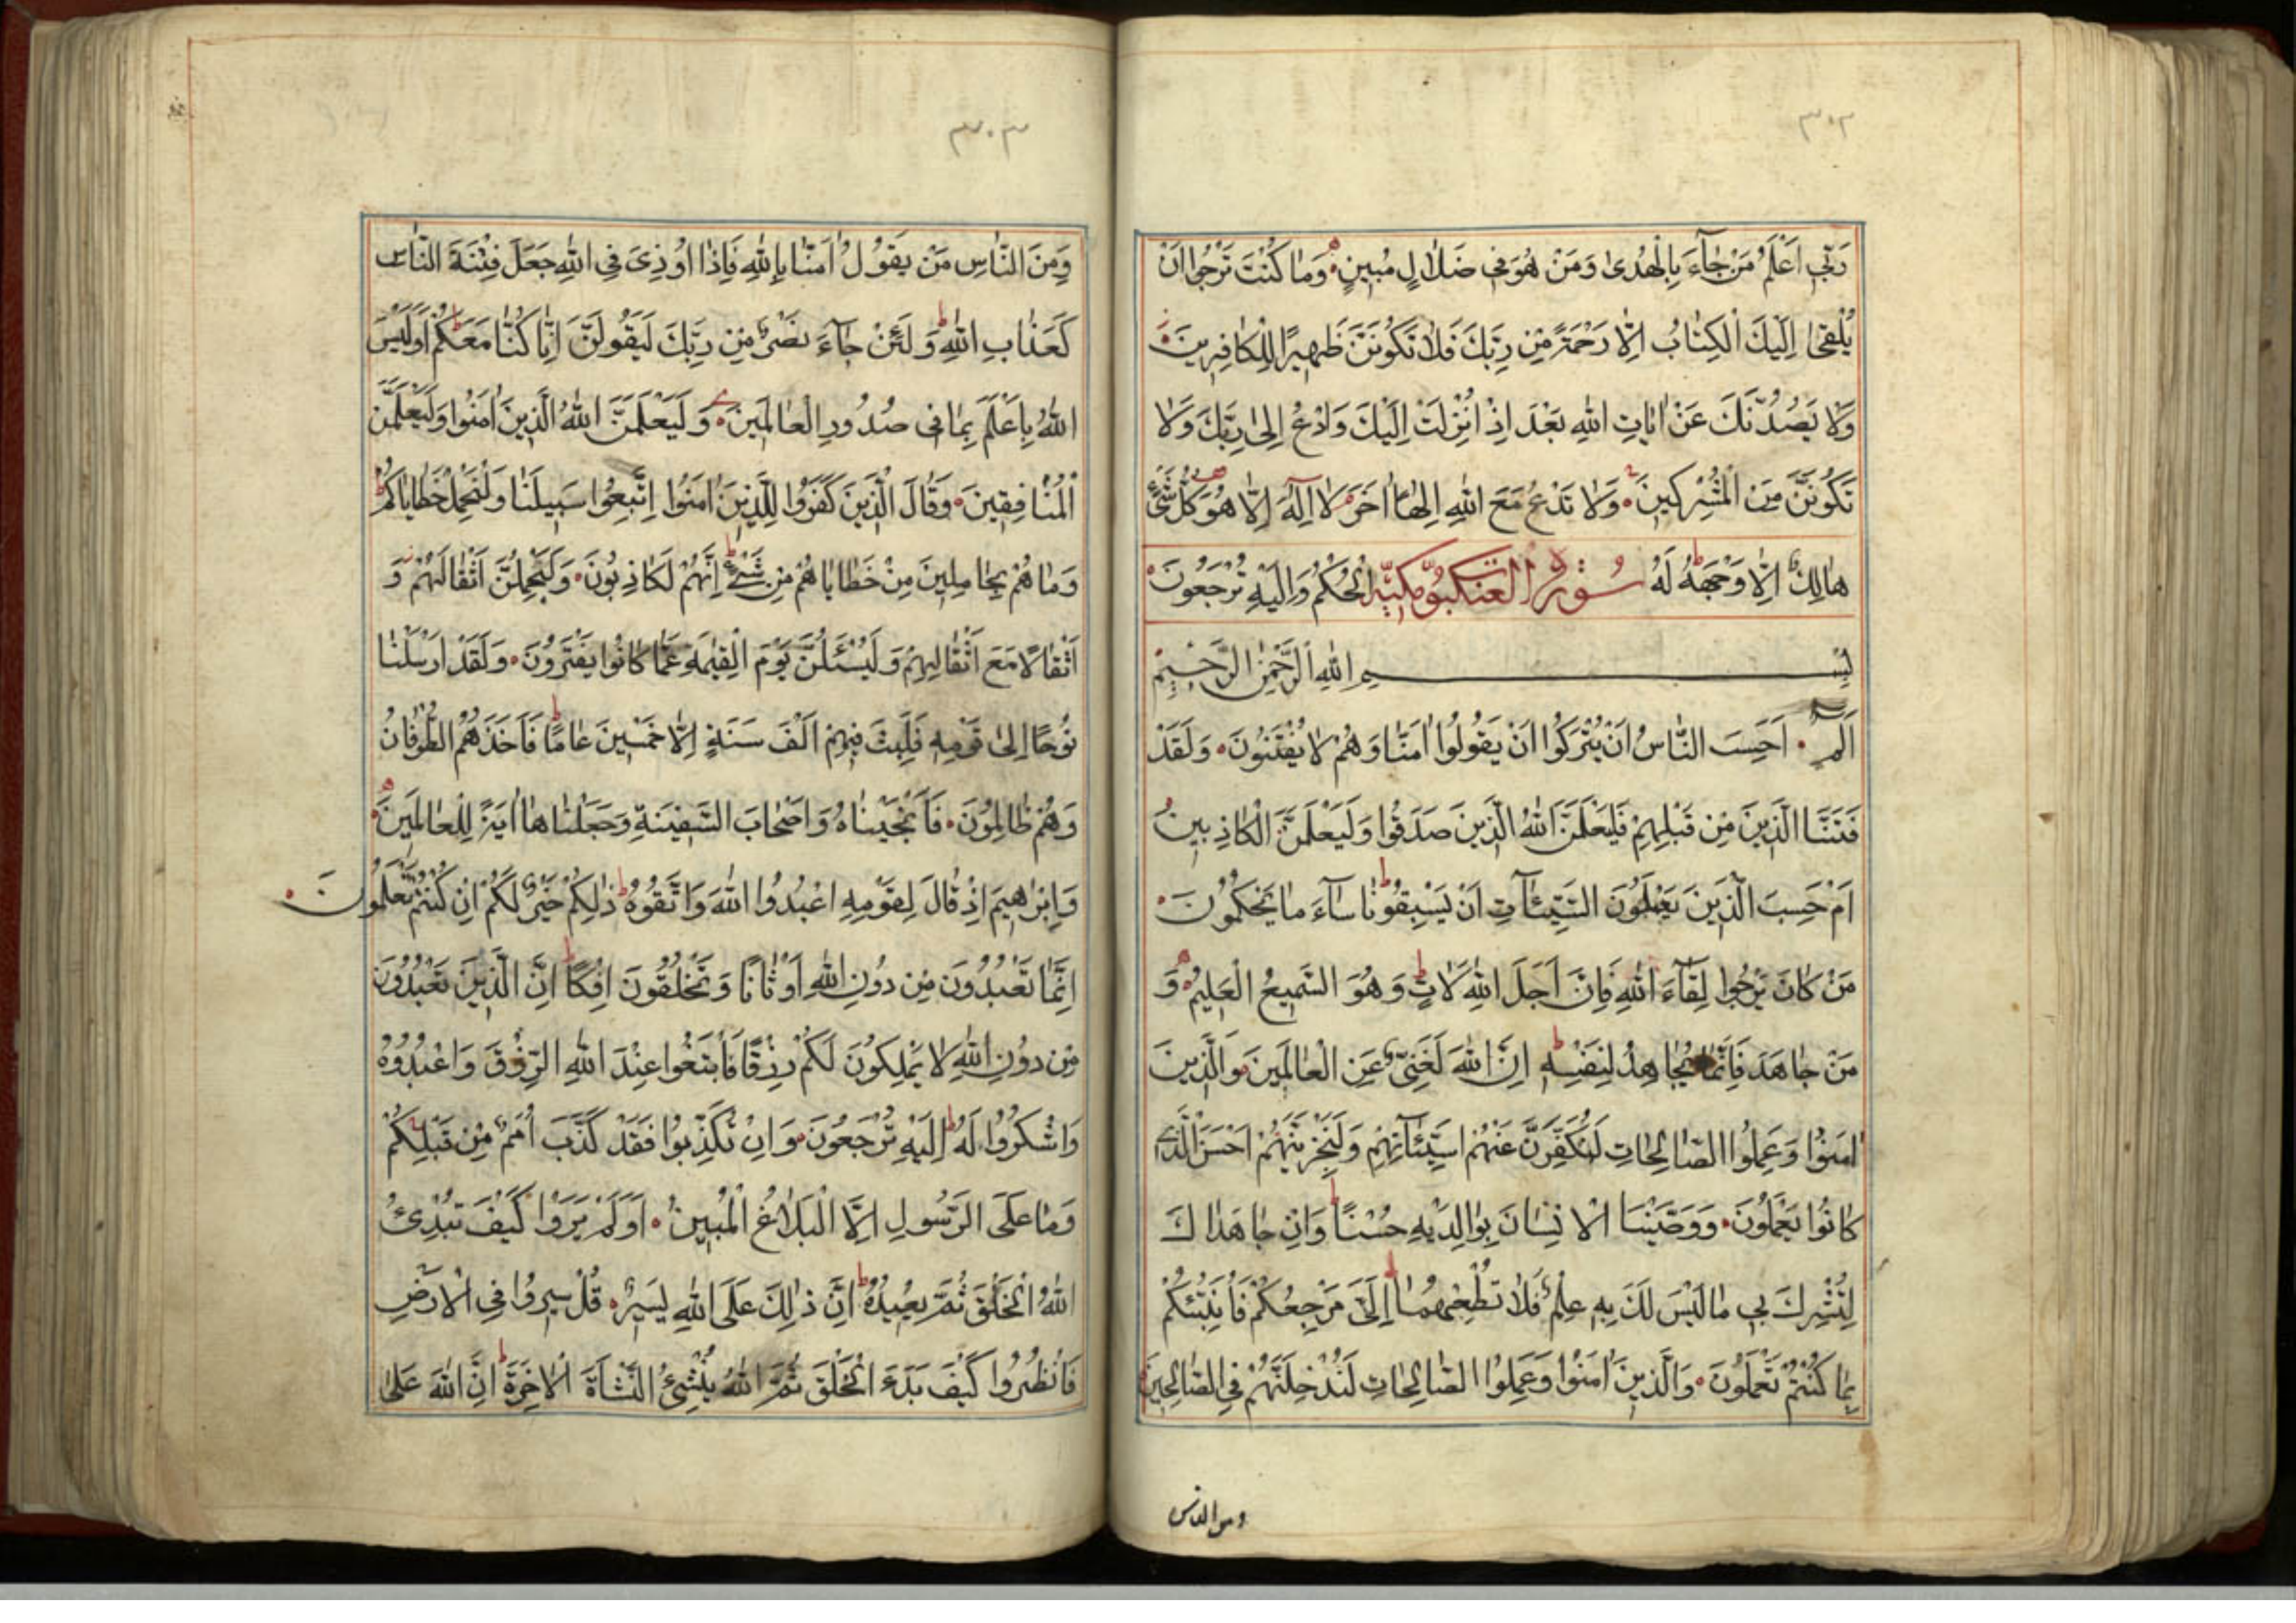 ٣٠٢
رَبِّي اَعْلَمُ مَنْ جَاۤءَ بِالْهُدىٰ وَمَنْ هُوَ في ضَلالٍ مُبينٍ وَمٰا كُنْتَ تَرْجُوا اَنْ
يُلْقىٰ اِلَيْكَ الْكِتٰابُ اِلّٰا رَحْمَةً مِنْ رَبِّكَ فَلٰا تَكُونَنَّ ظَهيرًا لِلْكٰافِرينَ
وَلٰا يَصُدُّنَّكَ عَنْ اٰيٰاتِ اللهِ بَعْدَ اِذْ اُنْزِلَتْ اِلَيْكَ وَادْعُ اِلىٰ رَبِّكَ وَلٰا
تَكُونَنَّ مِنَ الْمُشْرِكينَ وَلٰا تَدْعُ مَعَ اللهِ اِلٰهًا اٰخَرَ لٰا اِلٰهَ اِلّٰا هُوَ كُلُّ شَيْءٍ
هٰالِكٌ اِلّٰا وَجْهَهُ لَهُ سُورة العنكبوت مكيّة الْحُكْمُ وَاِلَيْهِ تُرْجَعُونَ
بِسْمِ اللهِ الرَّحْمٰنِ الرَّحيمِ
الم اَحَسِبَ النّٰاسُ اَنْ يُتْرَكُوا اَنْ يَقُولُوا اٰمَنّٰا وَهُمْ لٰا يُفْتَنُونَ وَلَقَدْ
فَتَنَّا الَّذينَ مِنْ قَبْلِهِمْ فَلَيَعْلَمَنَّ اللهُ الَّذينَ صَدَقُوا وَلَيَعْلَمَنَّ الْكٰاذِبينَ
اَمْ حَسِبَ الَّذينَ يَعْمَلُونَ السَّيِّئٰاتِ اَنْ يَسْبِقُونٰا سٰاۤءَ مٰا يَحْكُمُونَ
مَنْ كٰانَ يَرْجُوا لِقٰاۤءَ اللهِ فَاِنَّ اَجَلَ اللهِ لَاٰتٍ وَهُوَ السَّميعُ الْعَليمُ وَ
مَنْ جٰاهَدَ فَاِنَّمٰا يُجٰاهِدُ لِنَفْسِهِ اِنَّ اللهَ لَغَنِيٌّ عَنِ الْعٰالَمينَ وَالَّذينَ
اٰمَنُوا وَعَمِلُوا الصّٰالِحٰاتِ لَنُكَفِّرَنَّ عَنْهُمْ سَيِّئٰاتِهِمْ وَلَنَجْزِيَنَّهُمْ اَحْسَنَ الَّذي
كٰانُوا يَعْمَلُونَ وَوَصَّيْنَا الْاِنْسٰانَ بِوٰالِدَيْهِ حُسْنًا وَاِنْ جٰاهَدٰاكَ
لِتُشْرِكَ بي مٰا لَيْسَ لَكَ بِهِ عِلْمٌ فَلٰا تُطِعْهُمٰا اِلَيَّ مَرْجِعُكُمْ فَاُنَبِّئُكُمْ
بِمٰا كُنْتُمْ تَعْمَلُونَ وَالَّذينَ اٰمَنُوا وَعَمِلُوا الصّٰالِحٰاتِ لَنُدْخِلَنَّهُمْ فِي الصّٰالِحينَ
ومن الناس
٣٠٣
وَمِنَ النّٰاسِ مَنْ يَقُولُ اٰمَنّٰا بِاللهِ فَاِذٰا اُوذِيَ فِي اللهِ جَعَلَ فِتْنَةَ النّٰاسِ
كَعَذٰابِ اللهِ وَلَئِنْ جٰاۤءَ نَصْرٌ مِنْ رَبِّكَ لَيَقُولُنَّ اِنّٰا كُنّٰا مَعَكُمْ اَوَلَيْسَ
اللهُ بِاَعْلَمَ بِمٰا في صُدُورِ الْعٰالَمينَ وَلَيَعْلَمَنَّ اللهُ الَّذينَ اٰمَنُوا وَلَيَعْلَمَنَّ
الْمُنٰافِقينَ وَقٰالَ الَّذينَ كَفَرُوا لِلَّذينَ اٰمَنُوا اتَّبِعُوا سَبيلَنٰا وَلْنَحْمِلْ خَطٰايٰاكُمْ
وَمٰا هُمْ بِحٰامِلينَ مِنْ خَطٰايٰاهُمْ مِنْ شَيْءٍ اِنَّهُمْ لَكٰاذِبُونَ وَلَيَحْمِلُنَّ اَثْقٰالَهُمْ وَ
اَثْقٰالًا مَعَ اَثْقٰالِهِمْ وَلَيُسْئَلُنَّ يَوْمَ الْقِيٰمَةِ عَمّٰا كٰانُوا يَفْتَرُونَ وَلَقَدْ اَرْسَلْنٰا
نُوحًا اِلىٰ قَوْمِهِ فَلَبِثَ فيهِمْ اَلْفَ سَنَةٍ اِلّٰا خَمْسينَ عٰامًا فَاَخَذَهُمُ الطُّوفٰانُ
وَهُمْ ظٰالِمُونَ فَاَنْجَيْنٰاهُ وَاَصْحٰابَ السَّفينَةِ وَجَعَلْنٰاهٰا اٰيَةً لِلْعٰالَمينَ
وَاِبْرٰاهيمَ اِذْ قٰالَ لِقَوْمِهِ اعْبُدُوا اللهَ وَاتَّقُوهُ ذٰلِكُمْ خَيْرٌ لَكُمْ اِنْ كُنْتُمْ تَعْلَمُونَ
اِنَّمٰا تَعْبُدُونَ مِنْ دُونِ اللهِ اَوْثٰانًا وَتَخْلُقُونَ اِفْكًا اِنَّ الَّذينَ تَعْبُدُونَ
مِنْ دُونِ اللهِ لٰا يَمْلِكُونَ لَكُمْ رِزْقًا فَابْتَغُوا عِنْدَ اللهِ الرِّزْقَ وَاعْبُدُوهُ
وَاشْكُرُوا لَهُ اِلَيْهِ تُرْجَعُونَ وَاِنْ تُكَذِّبُوا فَقَدْ كَذَّبَ اُمَمٌ مِنْ قَبْلِكُمْ
وَمٰا عَلَى الرَّسُولِ اِلَّا الْبَلٰاغُ الْمُبينُ اَوَلَمْ يَرَوْا كَيْفَ يُبْدِئُ
اللهُ الْخَلْقَ ثُمَّ يُعيدُهُ اِنَّ ذٰلِكَ عَلَى اللهِ يَسيرٌ قُلْ سيرُوا فِي الْاَرْضِ
فَانْظُرُوا كَيْفَ بَدَءَ الْخَلْقَ ثُمَّ اللهُ يُنْشِئُ النَّشْاَةَ الْاٰخِرَةَ اِنَّ اللهَ عَلىٰ